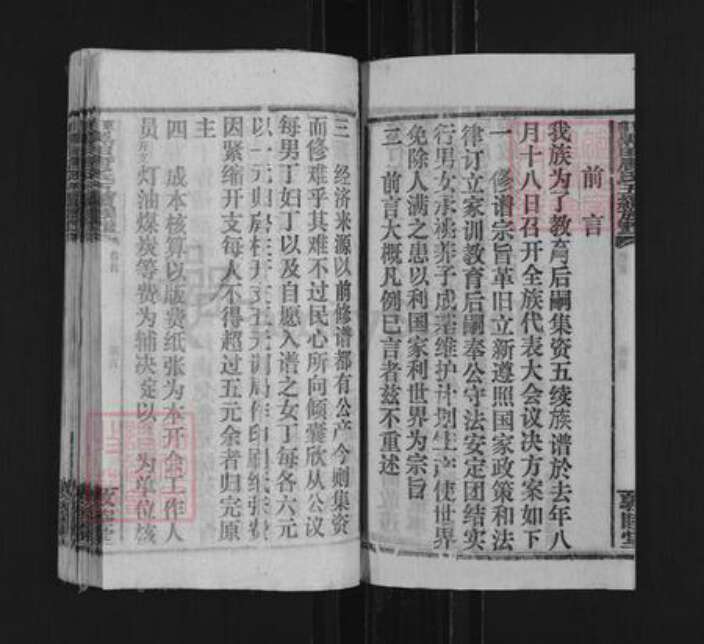 前言
我族为了教育后嗣集资五续族谱於去年八
月十八日召开全族代表大会议决方案如下
一 修谱宗旨革旧立新遵照国家政策和法
律订立家训教育后嗣奉公守法安定团结实
行男女承桃养子成 维护计划生 使世界
免除人满之患以利国家利世界为宗旨
三 前言大概凡例已言者兹不重述
三 经济来源以前修谱都有公产今则集资
而修难乎其难不过民心所向倾囊欣从公议
每男丁妇丁以及自愿入谱之女丁每各六元
以一元归房 开支五元 局作 印刷纸张费
因紧缩开支每人不得超过五元余者归完原
主
四 成本核算以版费纸张为本开会工作人
员 灯油煤炭等费为辅决定以 为单位 
敦睦堂